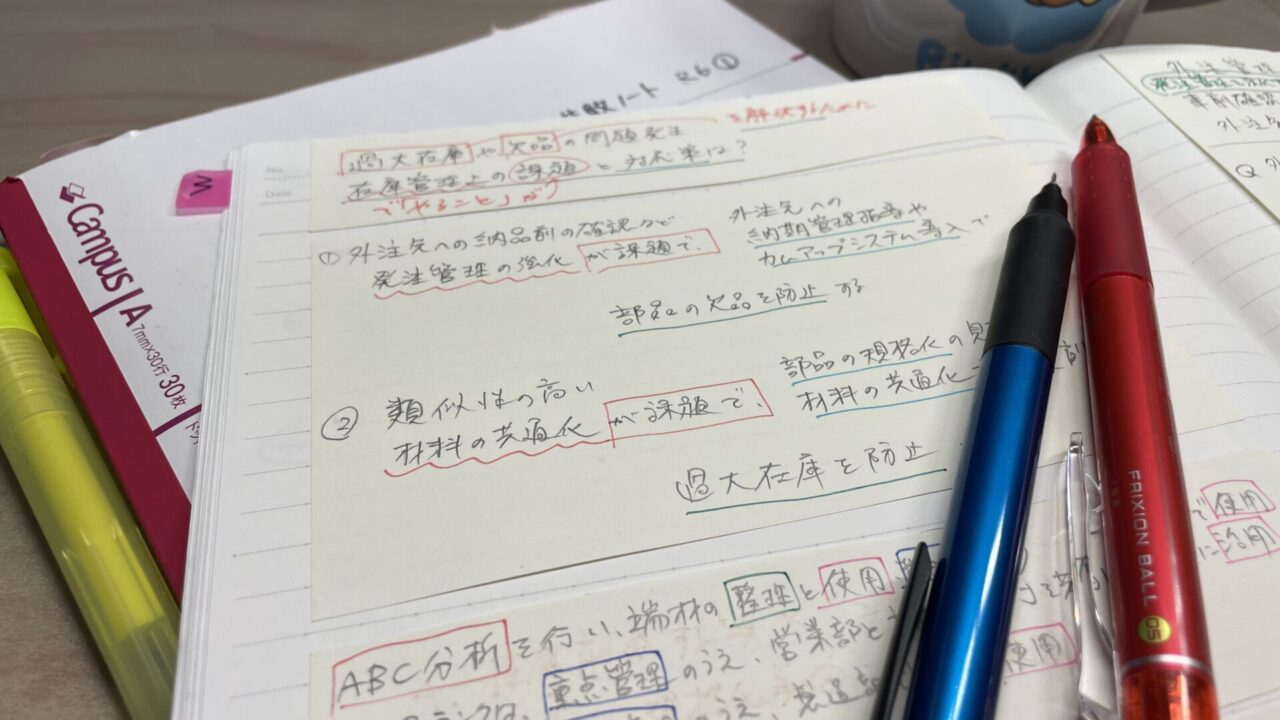 Campus A
7mm×30行 30枚
ノート R6①
No.
Date
過大在庫や欠品の問題発生
を解決するために
在庫管理上の課題と対応策は?
で「やること」が
①外注先への納品前の確認などで
発注管理の強化が課題で、
外注先への
納期管理指導や
カムアップシステム導入で
部品の欠品を防止する
②類似性の高い
材料の共通化が課題で、
部品の規格化の
材料の共通化
過大在庫を防止
ABC分析を行い、端材の整理と使用
重点管理のうえ、営業部と
のうえ、製造部
使用
で使用
に活用
外注管理
外注
Q
FRIXION BALL 05